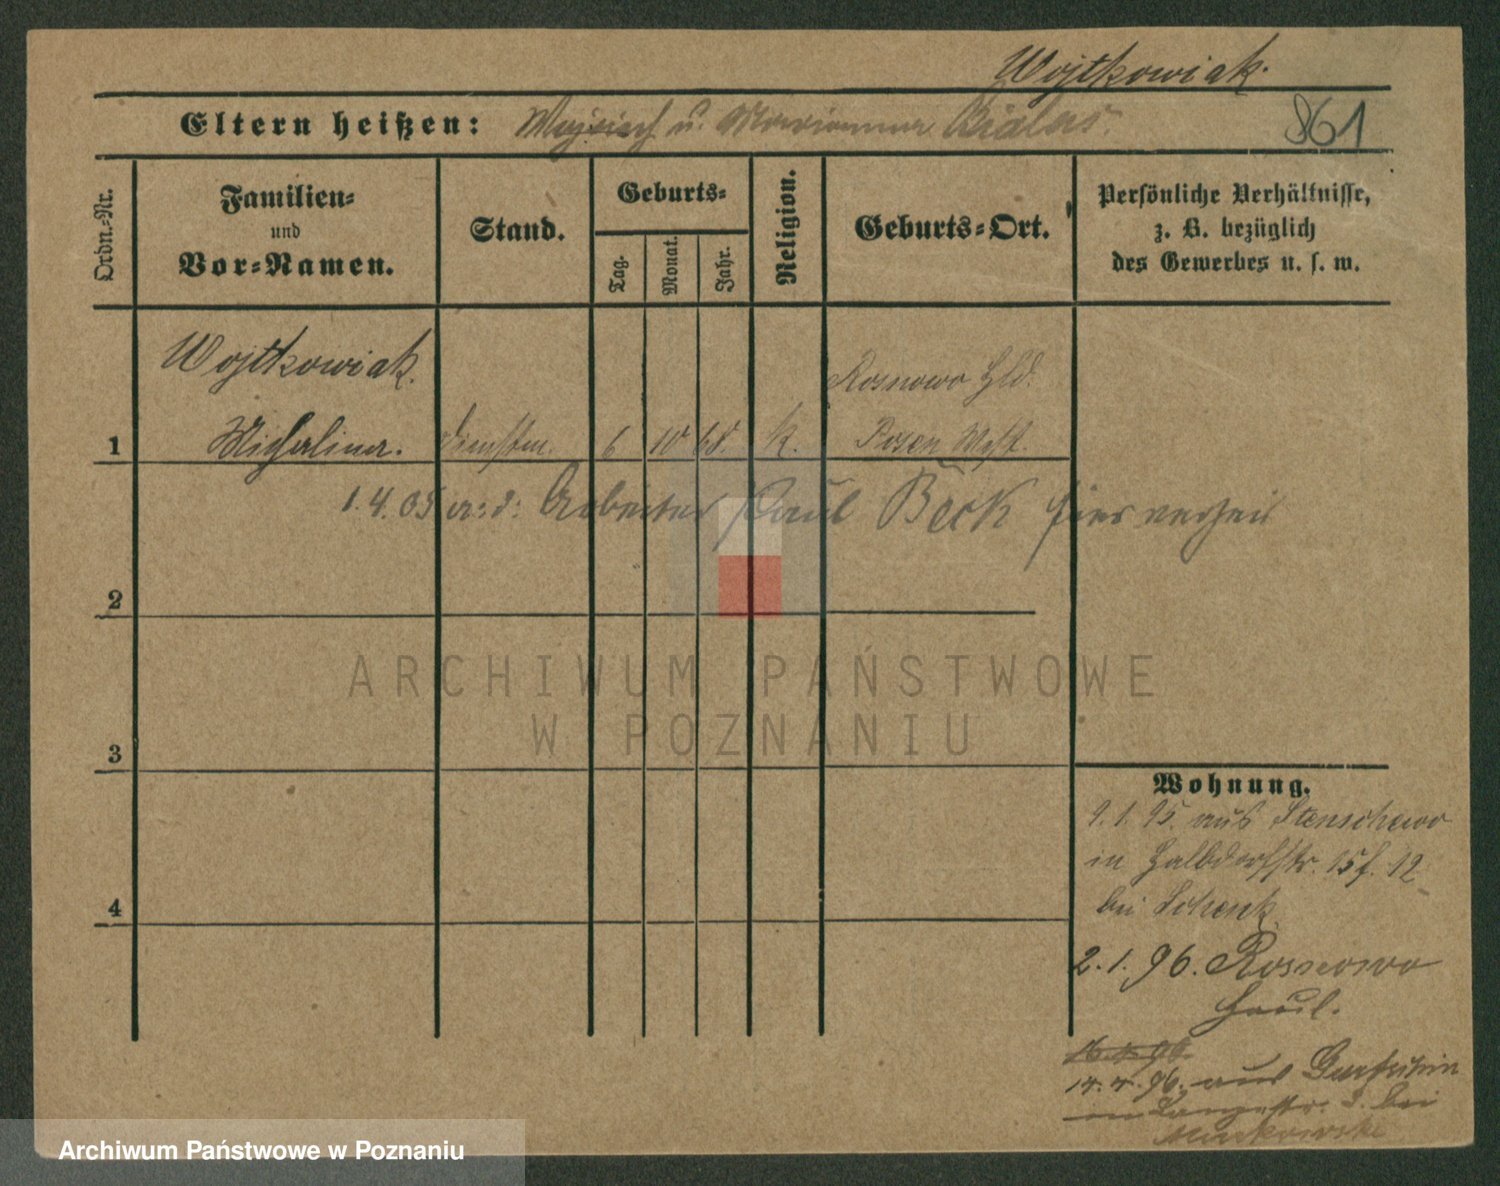 Wojtkowiak.
Eltern heißen: Wojciech u. Marianna Bialas.
861
Ordn.-Nr.
Familien-
und
Vor-Namen.
Stand.
Geburts-
Tag.
Monat.
Jahr.
Religion.
Geburts-Ort.
Persönliche Verhältnisse,
z. B. bezüglich
des Gewerbes u. s. w.
Wojtkowiak.
Rosnowo Hld.
1 Michalina. 6 10 68. k. Posen West.
1.4.05 a: d: Arbeiter Paul Beck hier verheir
2
3
4
Wohnung.
9.1.95. aus Stenschewo
in Halbdorfstr. 15 f. 12
bei Schenk
2.1.96. Rosnowo
Haul.
14.4.96. aus
in Langestr. 3. bei
ARCHIWUM PAŃSTWOWE
W POZNANIU
Archiwum Państwowe w Poznaniu